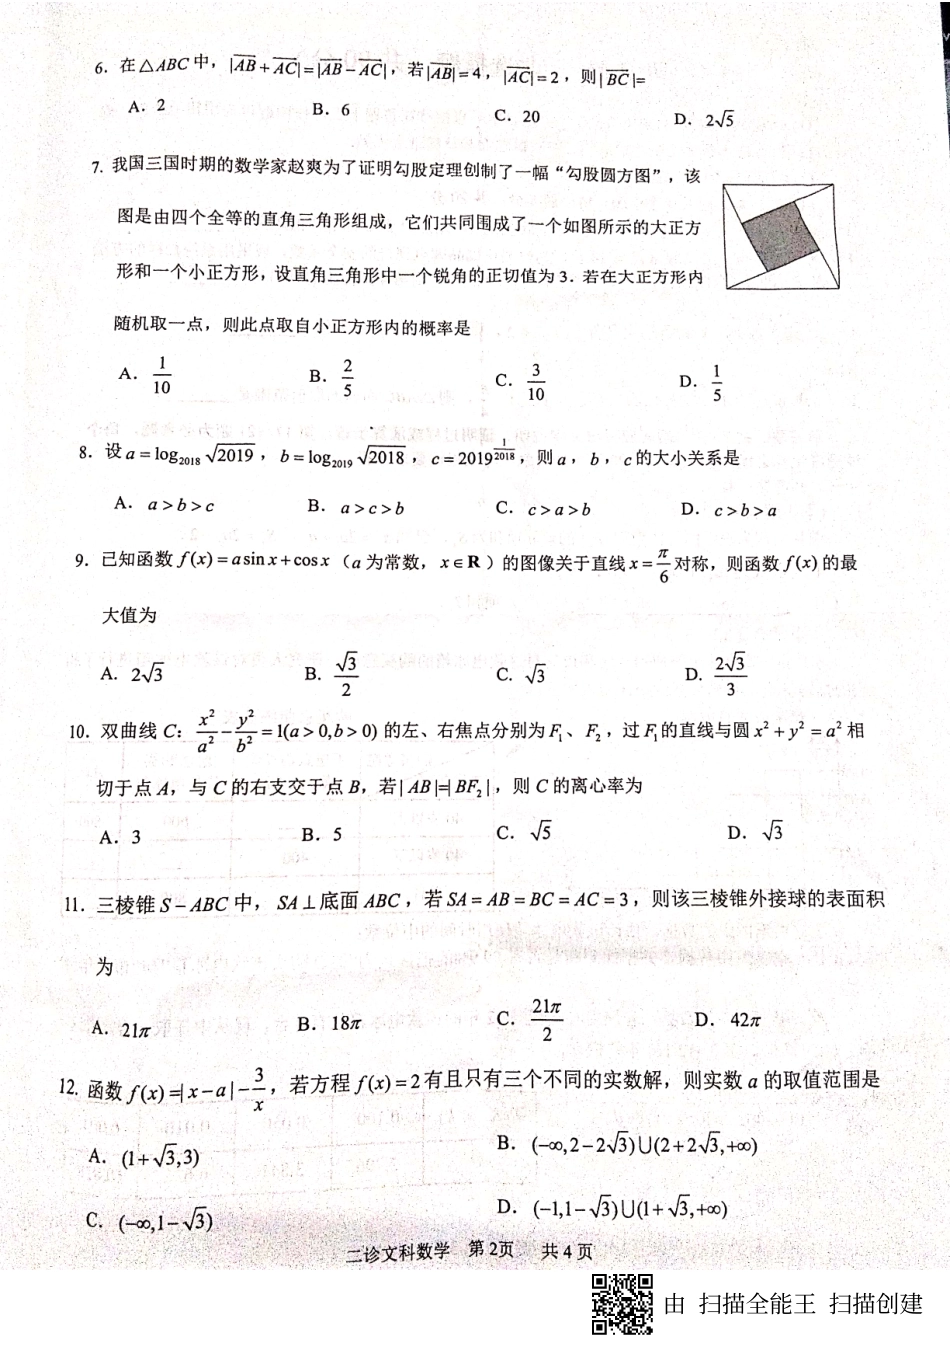 6. 在△ABC中，|$\overline{AB}$+$\overline{AC}$|=|$\overline{AB}$-$\overline{AC}$|，若|$\overline{AB}$|=4，|$\overline{AC}$|=2，则|$\overline{BC}$|=
A. 2 B. 6 C. 20 D. 2√5
7. 我国三国时期的数学家赵爽为了证明勾股定理创制了一幅“勾股圆方图”，该
图是由四个全等的直角三角形组成，它们共同围成了一个如图所示的大正方
形和一个小正方形，设直角三角形中一个锐角的正切值为3．若在大正方形内
随机取一点，则此点取自小正方形内的概率是
A. $\frac{1}{10}$ B. $\frac{2}{5}$ C. $\frac{3}{10}$ D. $\frac{1}{5}$
8. 设 $a=\log_{2018}\sqrt{2019}$，$b=\log_{2019}\sqrt{2018}$，$c=2019^{\frac{1}{2018}}$，则a，b，c的大小关系是
A. a>b>c B. a>c>b C. c>a>b D. c>b>a
9. 已知函数 f(x)=asin x+cos x（a为常数，x∈R）的图像关于直线 $x=\frac{π}{6}$ 对称，则函数 f(x) 的最
大值为
A. $2\sqrt{3}$ B. $\frac{\sqrt{3}}{2}$ C. $\sqrt{3}$ D. $\frac{2\sqrt{3}}{3}$
10. 双曲线 C: $\frac{x^2}{a^2}-\frac{y^2}{b^2}=1(a>0,b>0)$ 的左、右焦点分别为$F_1$、$F_2$，过$F_1$的直线与圆 $x^2+y^2=a^2$ 相
切于点A，与C的右支交于点B，若|AB|=|$BF_2$|，则C的离心率为
A. 3 B. 5 C. $\sqrt{5}$ D. $\sqrt{3}$
11. 三棱锥 S-ABC 中，SA⊥底面 ABC，若 SA=AB=BC=AC=3，则该三棱锥外接球的表面积
为
A. 21π B. 18π C. $\frac{21π}{2}$ D. 42π
12. 函数 $f(x)=|x-a|-\frac{3}{x}$，若方程 f(x)=2有且只有三个不同的实数解，则实数a的取值范围是
A. $(1+\sqrt{3},3)$ B. $(-∞,2-2\sqrt{3})∪(2+2\sqrt{3},+∞)$
C. $(-∞,1-\sqrt{3})$ D. $(-1,1-\sqrt{3})∪(1+\sqrt{3},+∞)$
二诊文科数学 第2页 共4页
由 扫描全能王 扫描创建